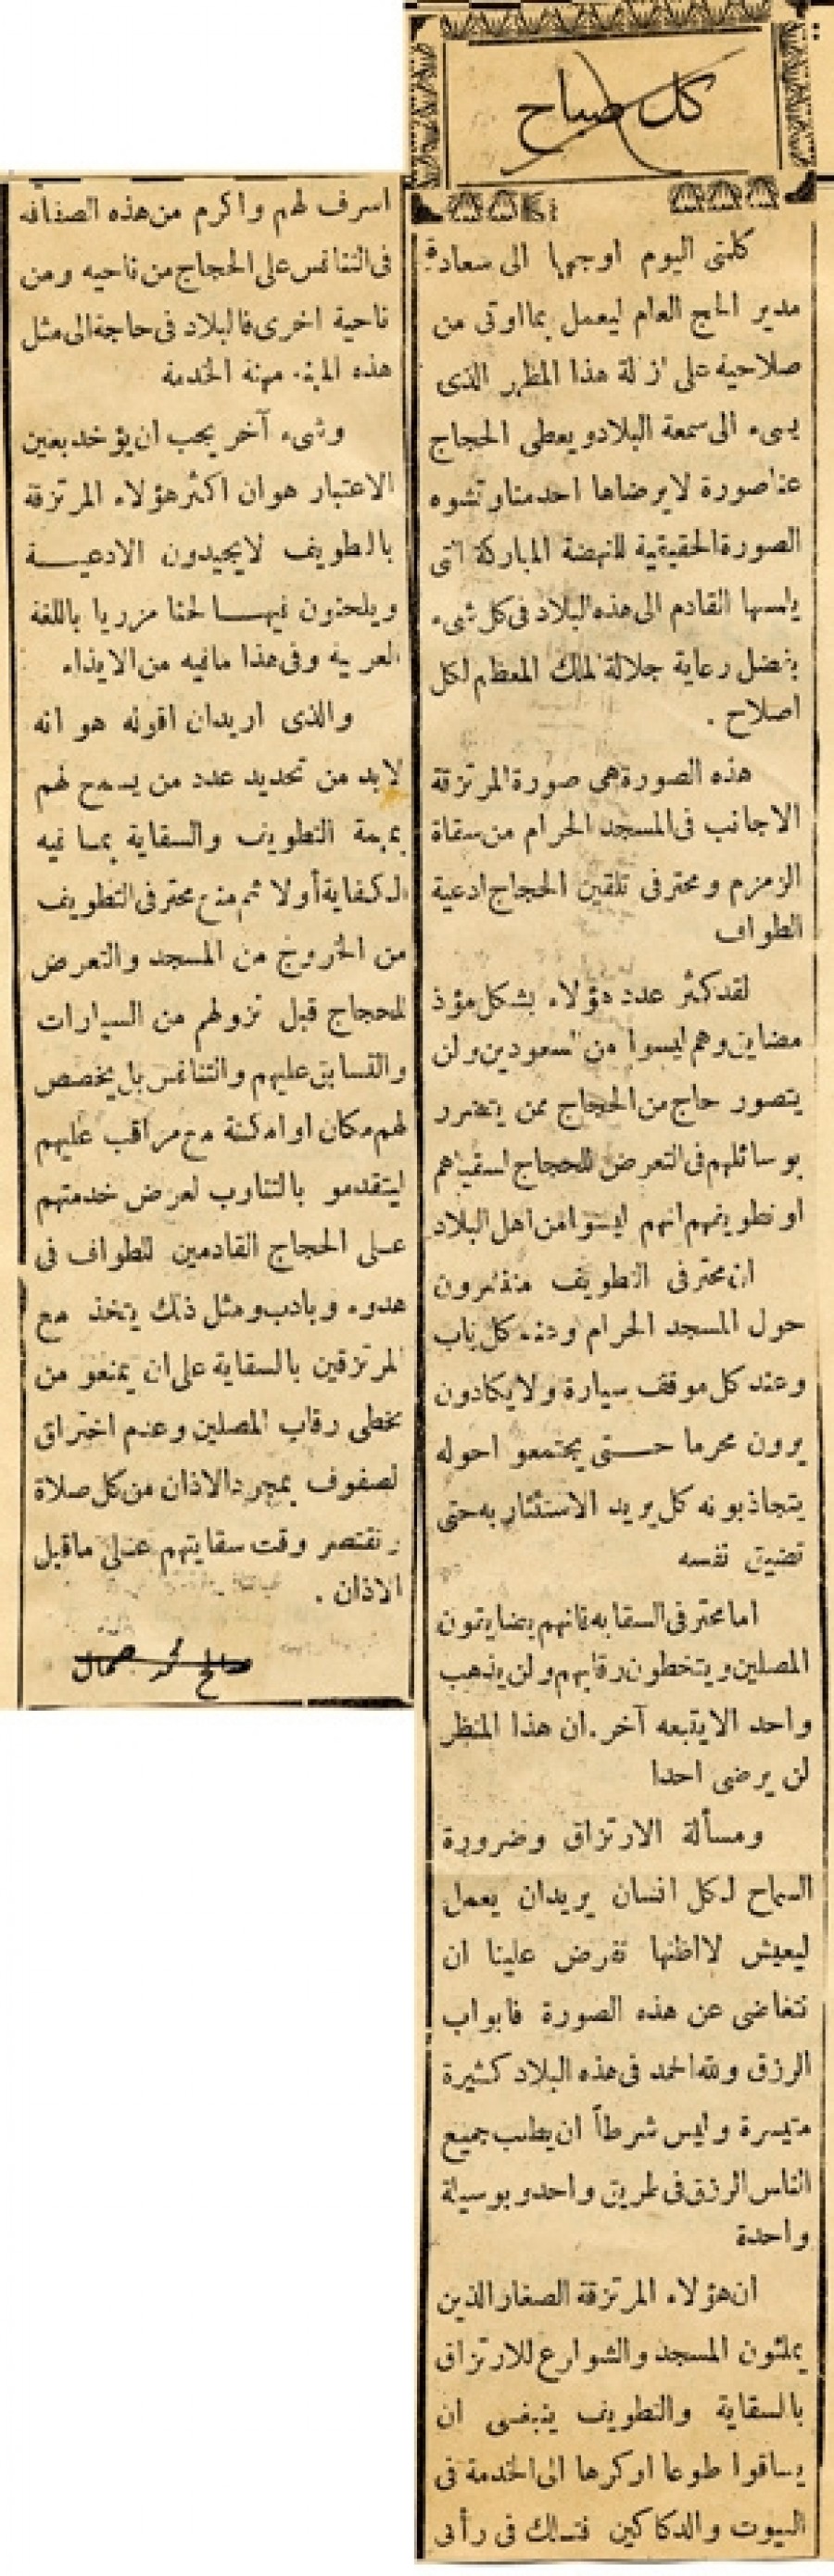 كل صباح
كلمتى اليوم اوجهها الى سعادة
مدير الحج العام ليعمل بما اوتى من
صلاحية على ازالة هذا المظهر الذى
يسىء الى سمعة البلاد ويعطى الحجاج
عنا صورة لا يرضاها احد منا وتشوه
الصورة الحقيقية للنهضة المباركة التى
يلمسها القادم الى هذه البلاد فى كل شىء
بفضل رعاية جلالة الملك المعظم لكل
اصلاح .
هذه الصورة هى صورة المرتزقة
الاجانب فى المسجد الحرام من سقاة
الزمزم ومحترفى تلقين الحجاج ادعية
الطواف
لقد كثر عدد هؤلاء بشكل مؤذ
مضايق وهم ليسوا من السعودين ولن
يتصور حاج من الحجاج ممن يتضرر
بوسائلهم فى التعرض للحجاج لسقياهم
او تطويفهم انهم ليسوا من اهل البلاد
ان محترفى التطويف منتشرون
حول المسجد الحرام وعند كل باب
وعند كل موقف سيارة ولا يكادون
يرون محرما حتى يجتمعو احوله
يتجاذبونه كل يريد الاستئثار به حتى
تضيق نفسه
اما محترفى السقايه فانهم يضايقون
المصلين ويتخطون رقابهم ولن يذهب
واحد الا يتبعه آخر . ان هذا المنظر
لن يرضى احدا
ومسألة الارتزاق وضرورة
السماح لكل انسان يريد ان يعمل
ليعيش لا اظنها تفرض علينا ان
نتغاضى عن هذه الصورة فابواب
الرزق ولله الحمد فى هذه البلاد كثيرة
متيسرة وليس شرطاً ان يطلب جميع
الناس الرزق فى طريق واحد وبوسيلة
واحدة
ان هؤلاء المرتزقة الصغار الذين
يملئون المسجد والشوارع للارتزاق
بالسقاية والتطويف ينبغى ان
يساقوا طوعا او كرها الى الخدمة فى
البيوت والدكاكين فتلك فى رأى
اشرف لهم واكرم من هذه الصفاقه
فى التنافس على الحجاج من ناحيه ومن
ناحية اخرى فالبلاد فى حاجة الى مثل
هذه المهنة مهنة الخدمة
وشىء آخر يجب ان يؤخذ بعين
الاعتبار هو ان اكثر هؤلاء المرتزقة
بالطويف لا يجيدون الادعيــة
ويلحنون فيهــا لحنا مزريا باللغة
العربية وفى هذا ما فيه من الايذاء
والذى اريد ان اقوله هو انه
لابد من تحديد عدد من يسمح لهم
بمهنة التطويف والسقاية بما فيه
الكفاية أولا ثم منع محترفى التطويف
من الخروج من المسجد والتعرض
للحجاج قبل نزولهم من السيارات
والتسابق عليهم والتنافس بل يخصص
لهم مكان او امكنة مع مراقب عليهم
ليتقدمو بالتناوب لعرض خدمتهم
على الحجاج القادمين للطواف فى
هدوء وبادب ومثل ذلك يتخذ مع
المرتزقين بالسقاية على ان يمنعو من
تخطى رقاب المصلين وعدم اختراق
لصفوف بمجرد الاذان من كل صلاة
وتقتصر وقت سقايتهم على ما قبل
الاذان .
صالح محمد جمال